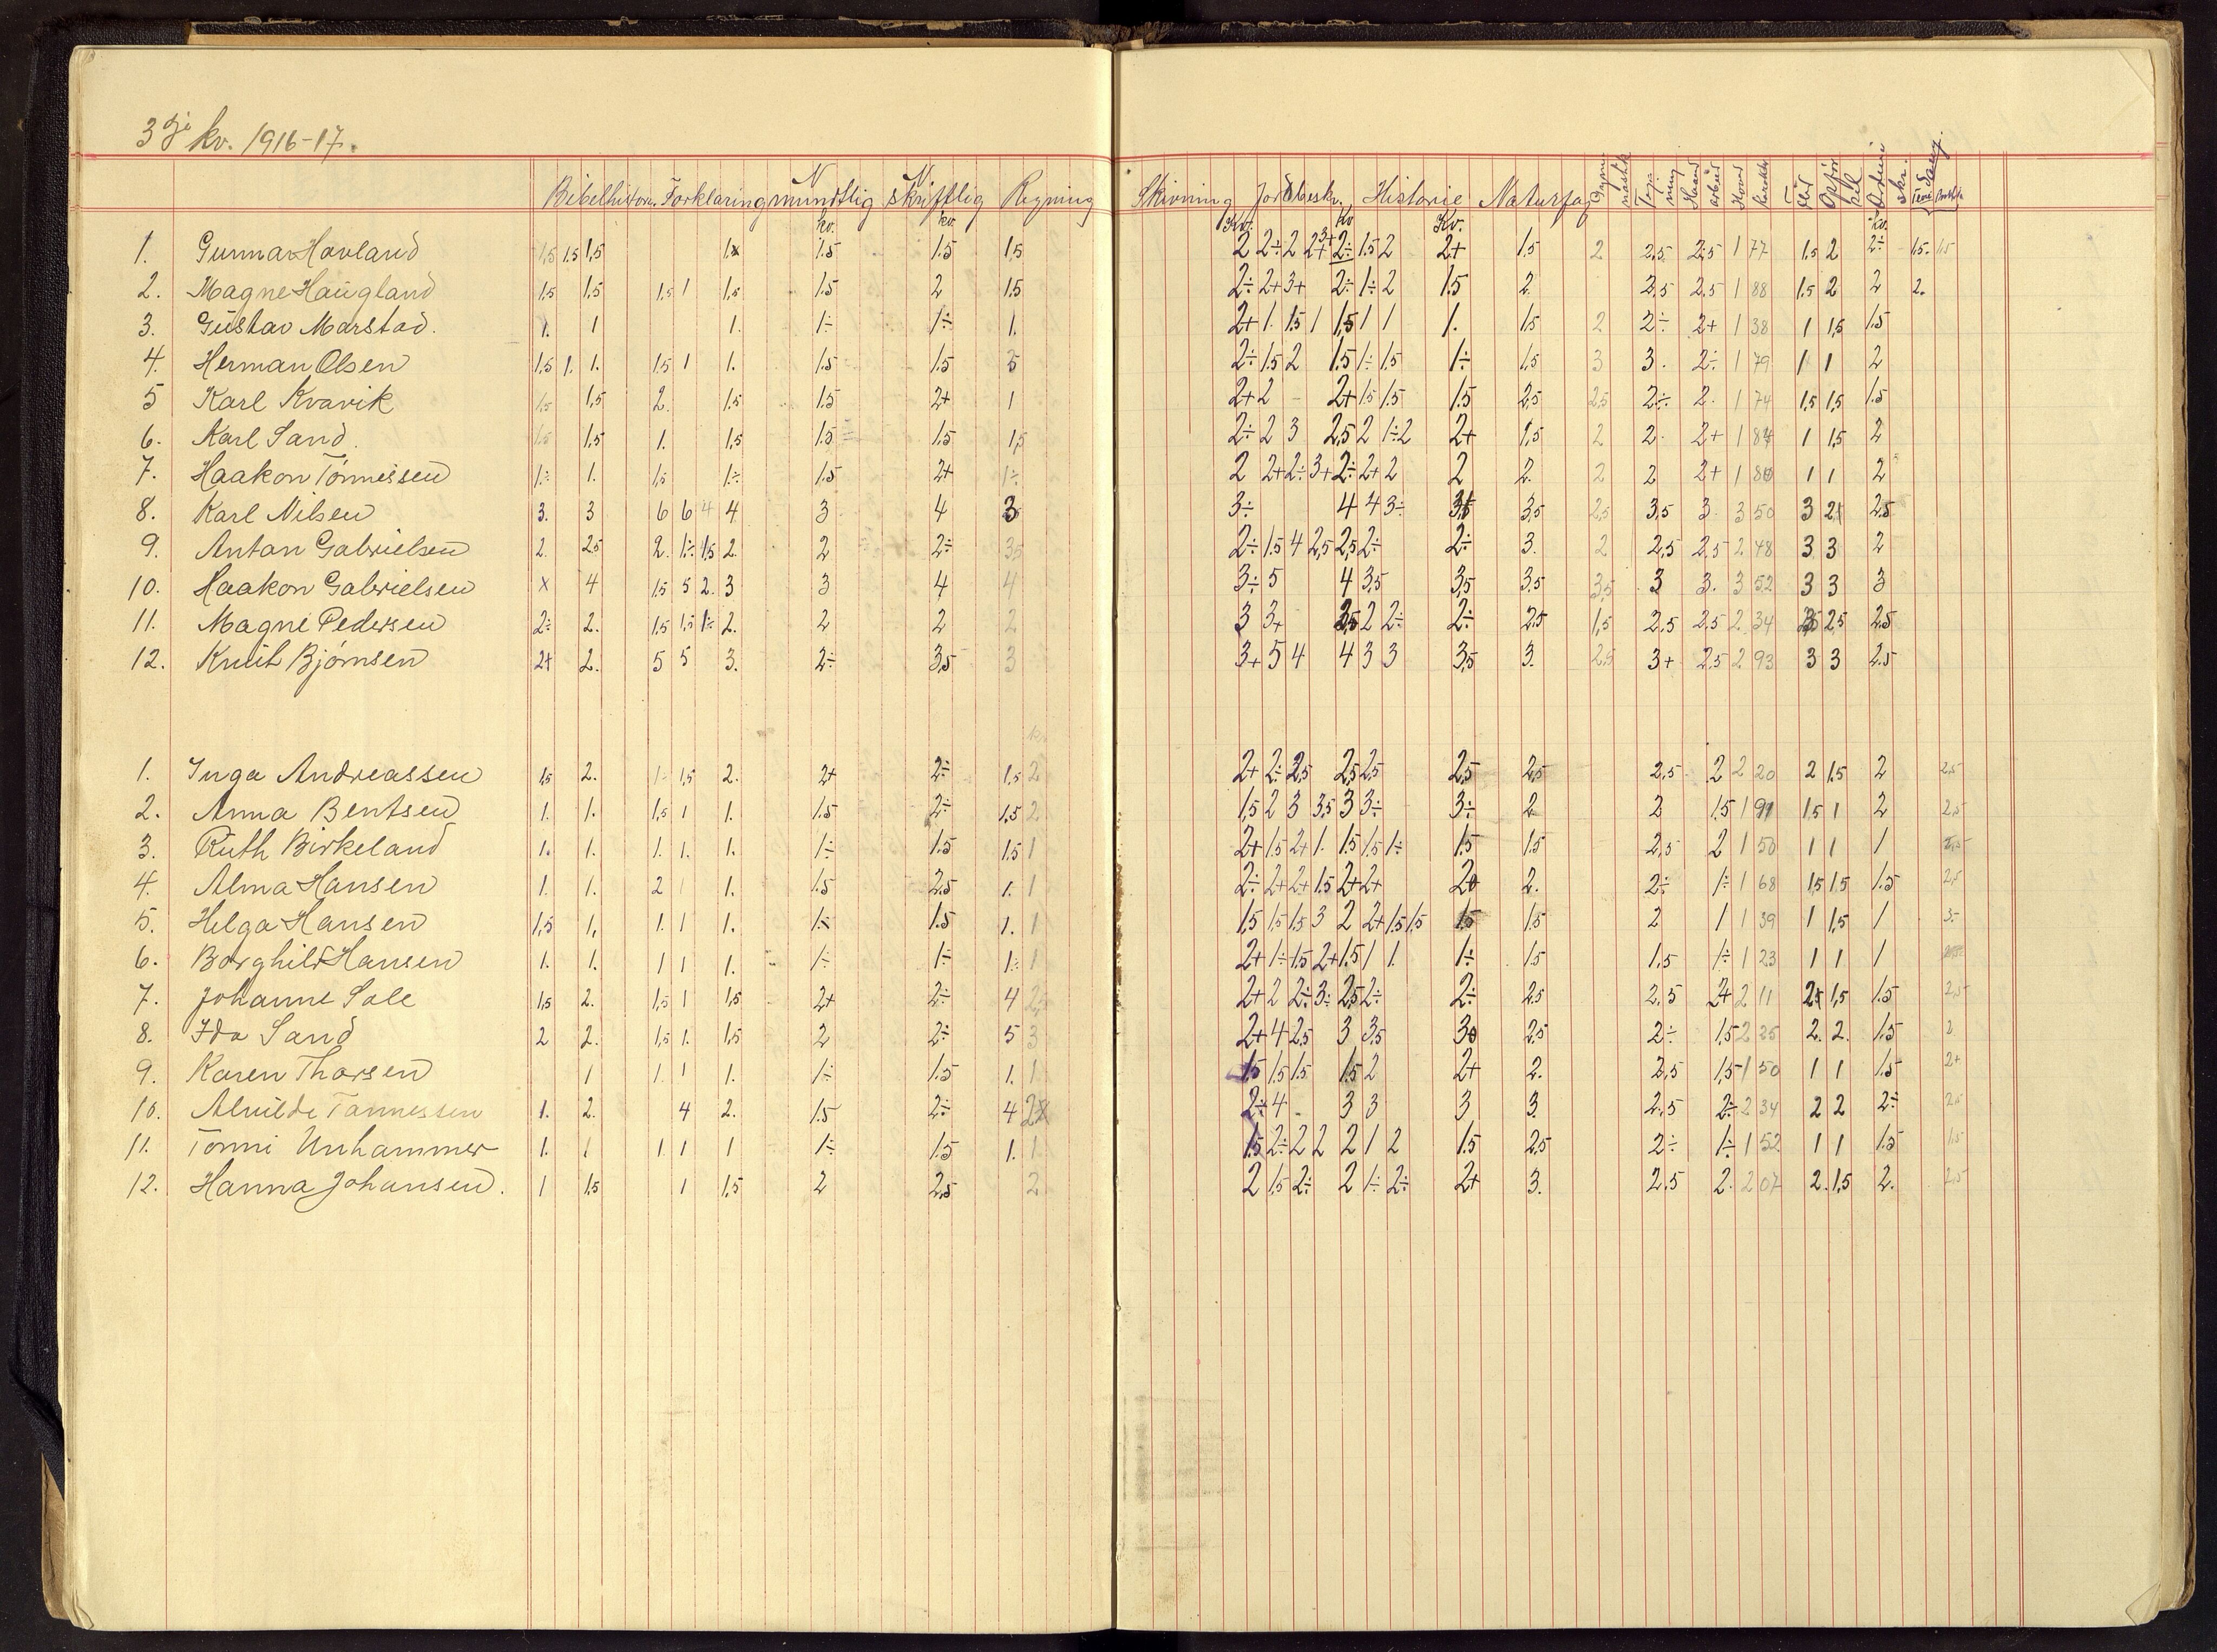 3dje kv. 1916-17.
Bibelhistorie Forklaring N mundtlig N skriftlig Regning Skrivning Jordbeskr. Historie Naturfag
kv. kv. Kv. Kv Kv. kv.
1. Gunnar Hovland 1,5 1.5 1,5 1.5 1.5 1,5 2 2÷ 2 2+ 2÷ 1.5 2 2+ 1.5 2 2,5 2.5 1 77 1.5 2 2÷ 1.5 1.5
2. Magne Haugland 1.5 1,5 1.5 1 1,5 1.5 2 1.5 2÷ 2+ 3+ 2÷ 1÷ 2 1.5 2 2.5 2.5 1 88 1.5 2 2 2.
3. Gustav Marstad. 1. 1 1. 1÷ 1÷ 1. 2+ 1. 1.5 1 1,5 1 1 1. 1.5 2 2÷ 2+ 1 38 1 1,5 1.5
4. Herman Olsen 1.5 1. 1. 1.5 1 1. 1.5 1.5 2÷ 1.5 2 1.5 1÷ 1.5 1÷ 1,5 3 3. 2÷ 1 79 1 1 2
5 Karl Kvavik 1.5 1,5 2. 1.5 1.5 2+ 1 2+ 2 2+ 1.5 1.5 1.5 2,5 2,5 2÷ 2. 1 74 1,5 1,5 1.5
6. Karl Sand. 1.5 1,5 1. 1,5 1.5 1.5 1,5 2÷ 2 3 2,5 2 1÷ 2 2+ 1,5 2 2. 2+ 1 1 1,5 2
7. Haakon Tönnessen 1÷ 1. 1.5 1÷ 1.5 2+ 1÷ 2 2+ 2÷ 3+ 2÷ 2+ 2 2 2. 2 2 2+ 1 1 1 2
8. Karl Nilsen 3. 3 6 6 4 4 3 4 3 3÷ 4 4 3÷ 3,5 2,5 3,5 3. 3 50 3 2.5
9. Anton Gabrielsen 2. 2.5 2. 1÷ 1,5 2. 2 2÷ 3.5 2÷ 1.5 4 2,5 2,5 2÷ 2÷ 3. 2 2,5 2,5 2 48 3 3 2
10. Haakon Gabrielsen x 4 1.5 5 2. 3 3 4 4 3÷ 5 4 3,5 3,5 3.5 3,5 3 3. 3 52 3 3 3
11. Magne Pedersen 2÷ 2. 1.5 1.5 1÷ 2. 2 2 2 3 3+ 2 2÷ 2÷ 2.5 1,5 2.5 2.5 2 34 2,5 2.5
12. Knut Bjørnsen 2+ 2. 5 5 3. 2÷ 3,5 3 3+ 5 4 4 3 3 3,5 3. 2,5 3+ 2,5 2 93 3 3 2.5
1. Inga Andreassen 1,5 2. 1÷ 1,5 2. 2+ 2÷ 1,5 2 2+ 2÷ 2,5 2,5 2,5 2,5 2,5 2,5 2 2 20 2 1.5 2 2,5
2. Anna Bentsen 1. 1. 1,5 1 1. 1.5 2÷ 1,5 2 1,5 2 3 3,5 3 3÷ 3÷ 2 2 1.5 1 1.5 1 2 2,5
3. Ruth Birkeland 1. 1. 1. 1. 1. 1÷ 1.5 1.5 1 2+ 1.5 2+ 1. 1.5 1.5 1÷ 1.5 1.5 2,5 2 1 50 1 1 1
4. Alma Hansen 1. 1. 2 1 1. 1.5 2.5 1. 1 2÷ 2+ 2+ 1.5 2+ 2+ 2. 2÷ 1÷ 1 68 1,5 1.5 1.5 2,5
5. Helga Hansen 1,5 1. 1. 1 1. 1.5 1. 1 1,5 1.5 1.5 3 2 2+ 1.5 1.5 1.5 1.5 2 1 1 39 1 1,5 1 3-
6. Borghild Hansen 1. 1. 1 1 1. 1÷ 1÷ 1÷ 1 2+ 1÷ 1.5 2+ 1.5 1 1. 1÷ 1.5 1,5 1÷ 1 23 1 1 1
7. Johanne Sole 1,5 2. 1,5 1 1,5 2+ 2÷ 4 2÷ 2+ 2 2÷ 3÷ 2,5 2÷ 2÷ 2,5 2.5 2+ 2 11 1,5 1.5 2,5
8. Ida Sand 2 2. 1,5 1. 1,5 2 2÷ 5 3 2+ 4 2,5 3 3,5 2,5 2÷ 1,5 2 25 2. 2. 1.5 2
9. Karen Thorsen 1 1. 1 1. 1÷ 1.5 1. 1 1.5 1.5 1.5 1.5 2 2+ 2. 2,5 1,5 1 50 1 1 1.5 2+
10. Alvilde Tønnessen 1. 2. 4 2. 1.5 2÷ 4 2÷ 4 3 3 3 3 2.5 2÷ 2 34 2 2 2÷ 2.5
11. Tønni Unhammer 1. 1 1. 1 1 1÷ 1.5 1. 1. 1.5 2÷ 2 2 2 1 2 1.5 2,5 2÷ 1÷ 1 52 1 1 1.5 1.5
12. Hanna Johansen. 1 1.5 1 1,5 2 2,5 2 2 1.5 2÷ 2 1÷ 2÷ 2+ 3. 2.5 2. 2 07 2. 1,5 2. 2,5